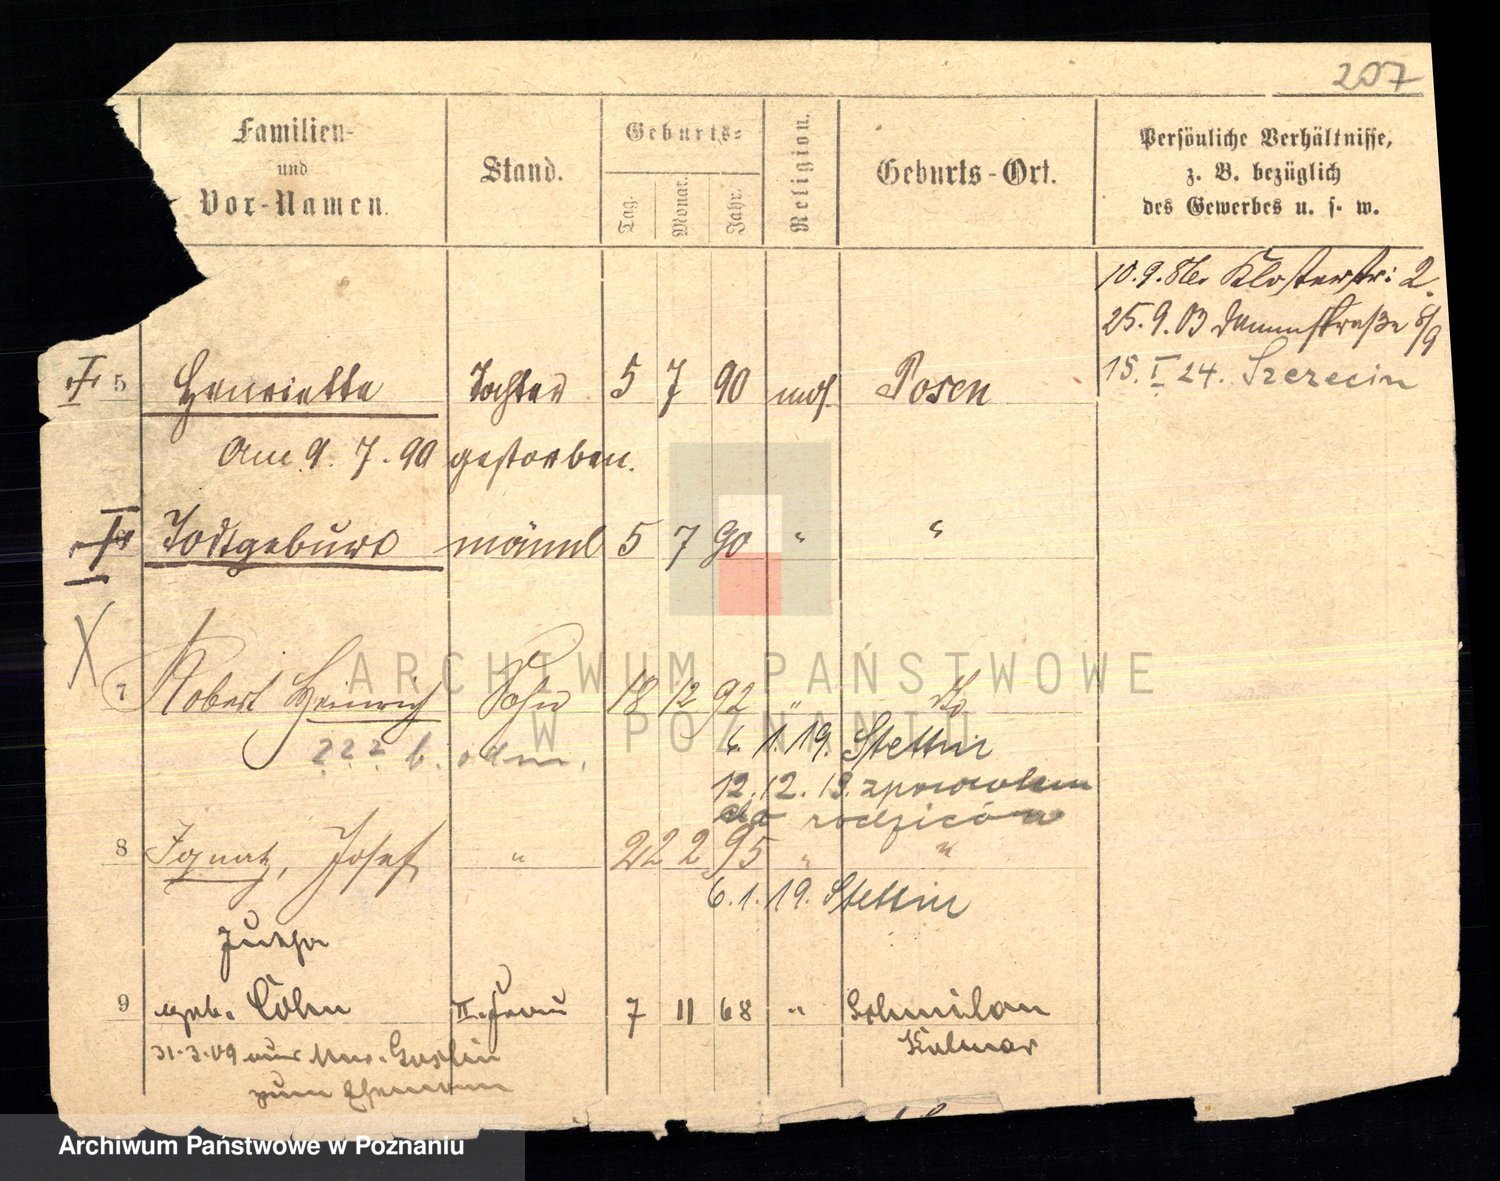 207
Familien-
und
Vor-Namen.
Stand.
Geburts-
Tag.
Monat.
Jahr.
Religion.
Geburts-Ort.
Persönliche Verhältnisse,
z. B. bezüglich
des Gewerbes u. s. w.
10. 9. Klosterstr: 2.
25. 9. 03 Dammstraße 8/9
15. I 24. Szczecin
5 Henriette Tochter 5 7 90 mos. Posen
Am 9. 7. 90 gestorben.
Todtgeburt männl 5 7 90 " "
X
7 Robert Heinrich Sohn 18 12 92 " Do
222 b.
6. 1. 19. Stettin
12. 12. 19. z powrotem
do rodziców
8 Ignatz, Josef " 22 2 95 " "
6. 1. 19. Stettin
Jutha
9 geb. Cohn II. Frau 7 11 68 " Schmilau
Kolmar
31. 3. 09 aus Mur. Goslin
zum Ehemann
ARCHIWUM PAŃSTWOWE
W POZNANIU
Archiwum Państwowe w Poznaniu